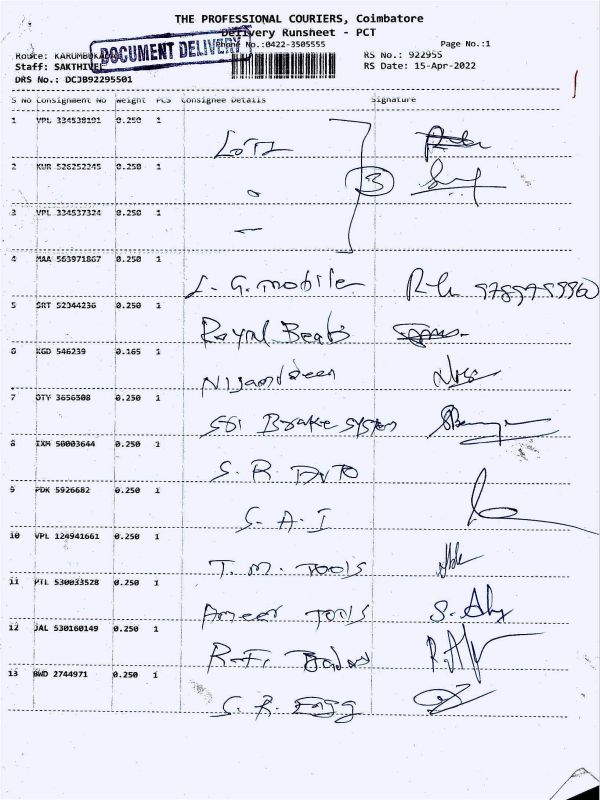 THE PROFESSIONAL COURIERS, Coimbatore
Delivery Runsheet - PCT
DOCUMENT DELIVERY
Phone No.:0422-3505555 Page No.:1
Route: RS No.: 922955
Staff: SAKTHIVEL RS Date: 15-Apr-2022
DRS No.: DCJB92295501
S No Consignment No Weight PCS Consignee Details Signature
1 VPL 334538191 0.250 1
2 KUR 526252245 0.250 1
3
3 VPL 334537324 0.250 1
4 MAA 563971867 0.250 1
L. G. mobile
5 SRT 52344236 0.250 1
Royal Beats
6 KGD 546239 0.165 1
7 OTY 3656508 0.250 1
SSI Brake System
8 IXM 50003644 0.250 1
S. R. Auto
9 PDK 5926682 0.250 1
S. A. I
10 VPL 124941661 0.250 1
T. M. TOOLS
11 PTL 530033528 0.250 1
Ameer Tools
12 JAL 530160149 0.250 1
13 BWD 2744971 0.250 1
S. R. Engg